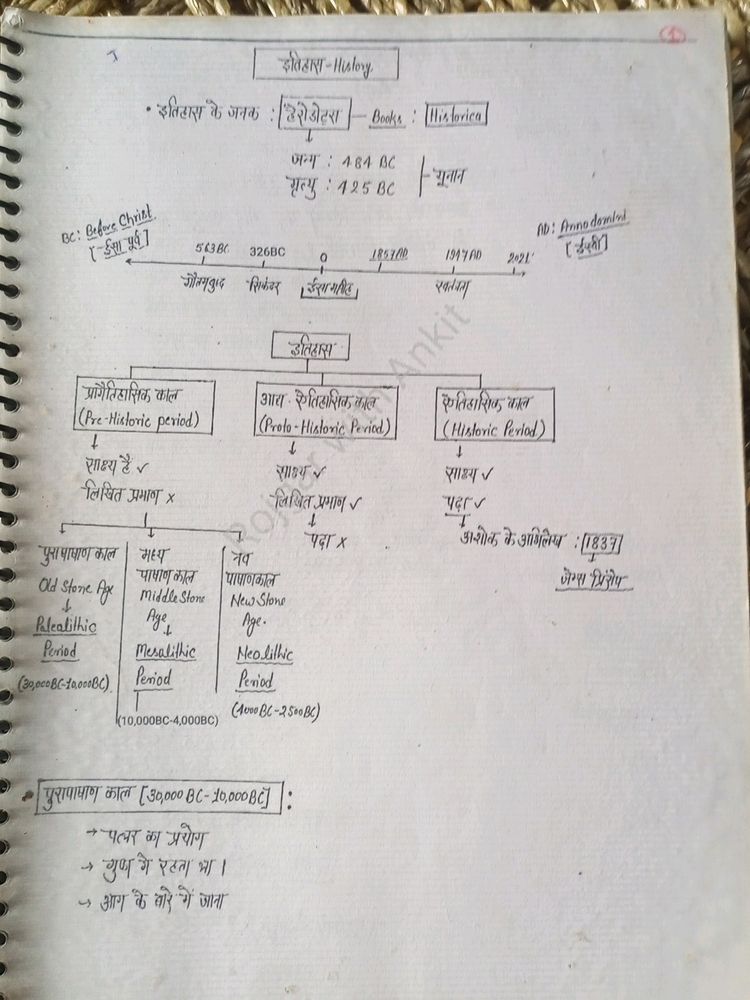 1
इतिहास-History
• इतिहास के जनक : हेरोडोटस — Books : Historica
जन्म : 484 BC
मृत्यु : 425 BC
यूनान
BC: Before Christ
[ईसा पूर्व]
AD: Annodomini
[ईस्वी]
563BC 326BC 0 1857AD 1947AD 2021
गौतमबुद्ध सिकंदर ईसा मसीह स्वतंत्रता
इतिहास
प्रागैतिहासिक काल
(Pre-Historic period)
↓
साक्ष्य है ✓
लिखित प्रमाण ×
आद्य-ऐतिहासिक काल
(Proto-Historic Period)
↓
साक्ष्य ✓
लिखित प्रमाण ✓
↓
पढ़ा ×
ऐतिहासिक काल
(Historic Period)
↓
साक्ष्य ✓
पढ़ा ✓
→ अशोक के अभिलेख : 1837
↓
जेम्स प्रिंसेप
पुरापाषाण काल
Old Stone Age
↓
Palealithic
Period
(30,000BC-10,000BC)
मध्य
पाषाणकाल
Middle Stone
Age
↓
Mesalithic
Period
(10,000BC-4,000BC)
नव
पाषाणकाल
New Stone
Age.
Neolithic
Period
(4000BC-2500BC)
• पुरापाषाण काल [30,000 BC-10,000BC] :
→ पत्थर का प्रयोग
→ गुफा में रहता था।
→ आग के बारे में जाना
Rojgar with Ankit